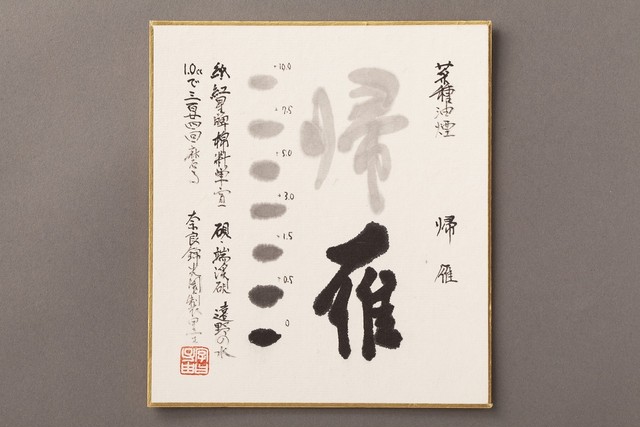 菜種油煙　帰雁
帰雁
10.0
7.5
5.0
3.0
1.5
0.5
0
紙 紅星牌棉料単宣 硯・端渓硯 遠野の水
1.0ccで三百廿四回磨る 奈良錦光園製